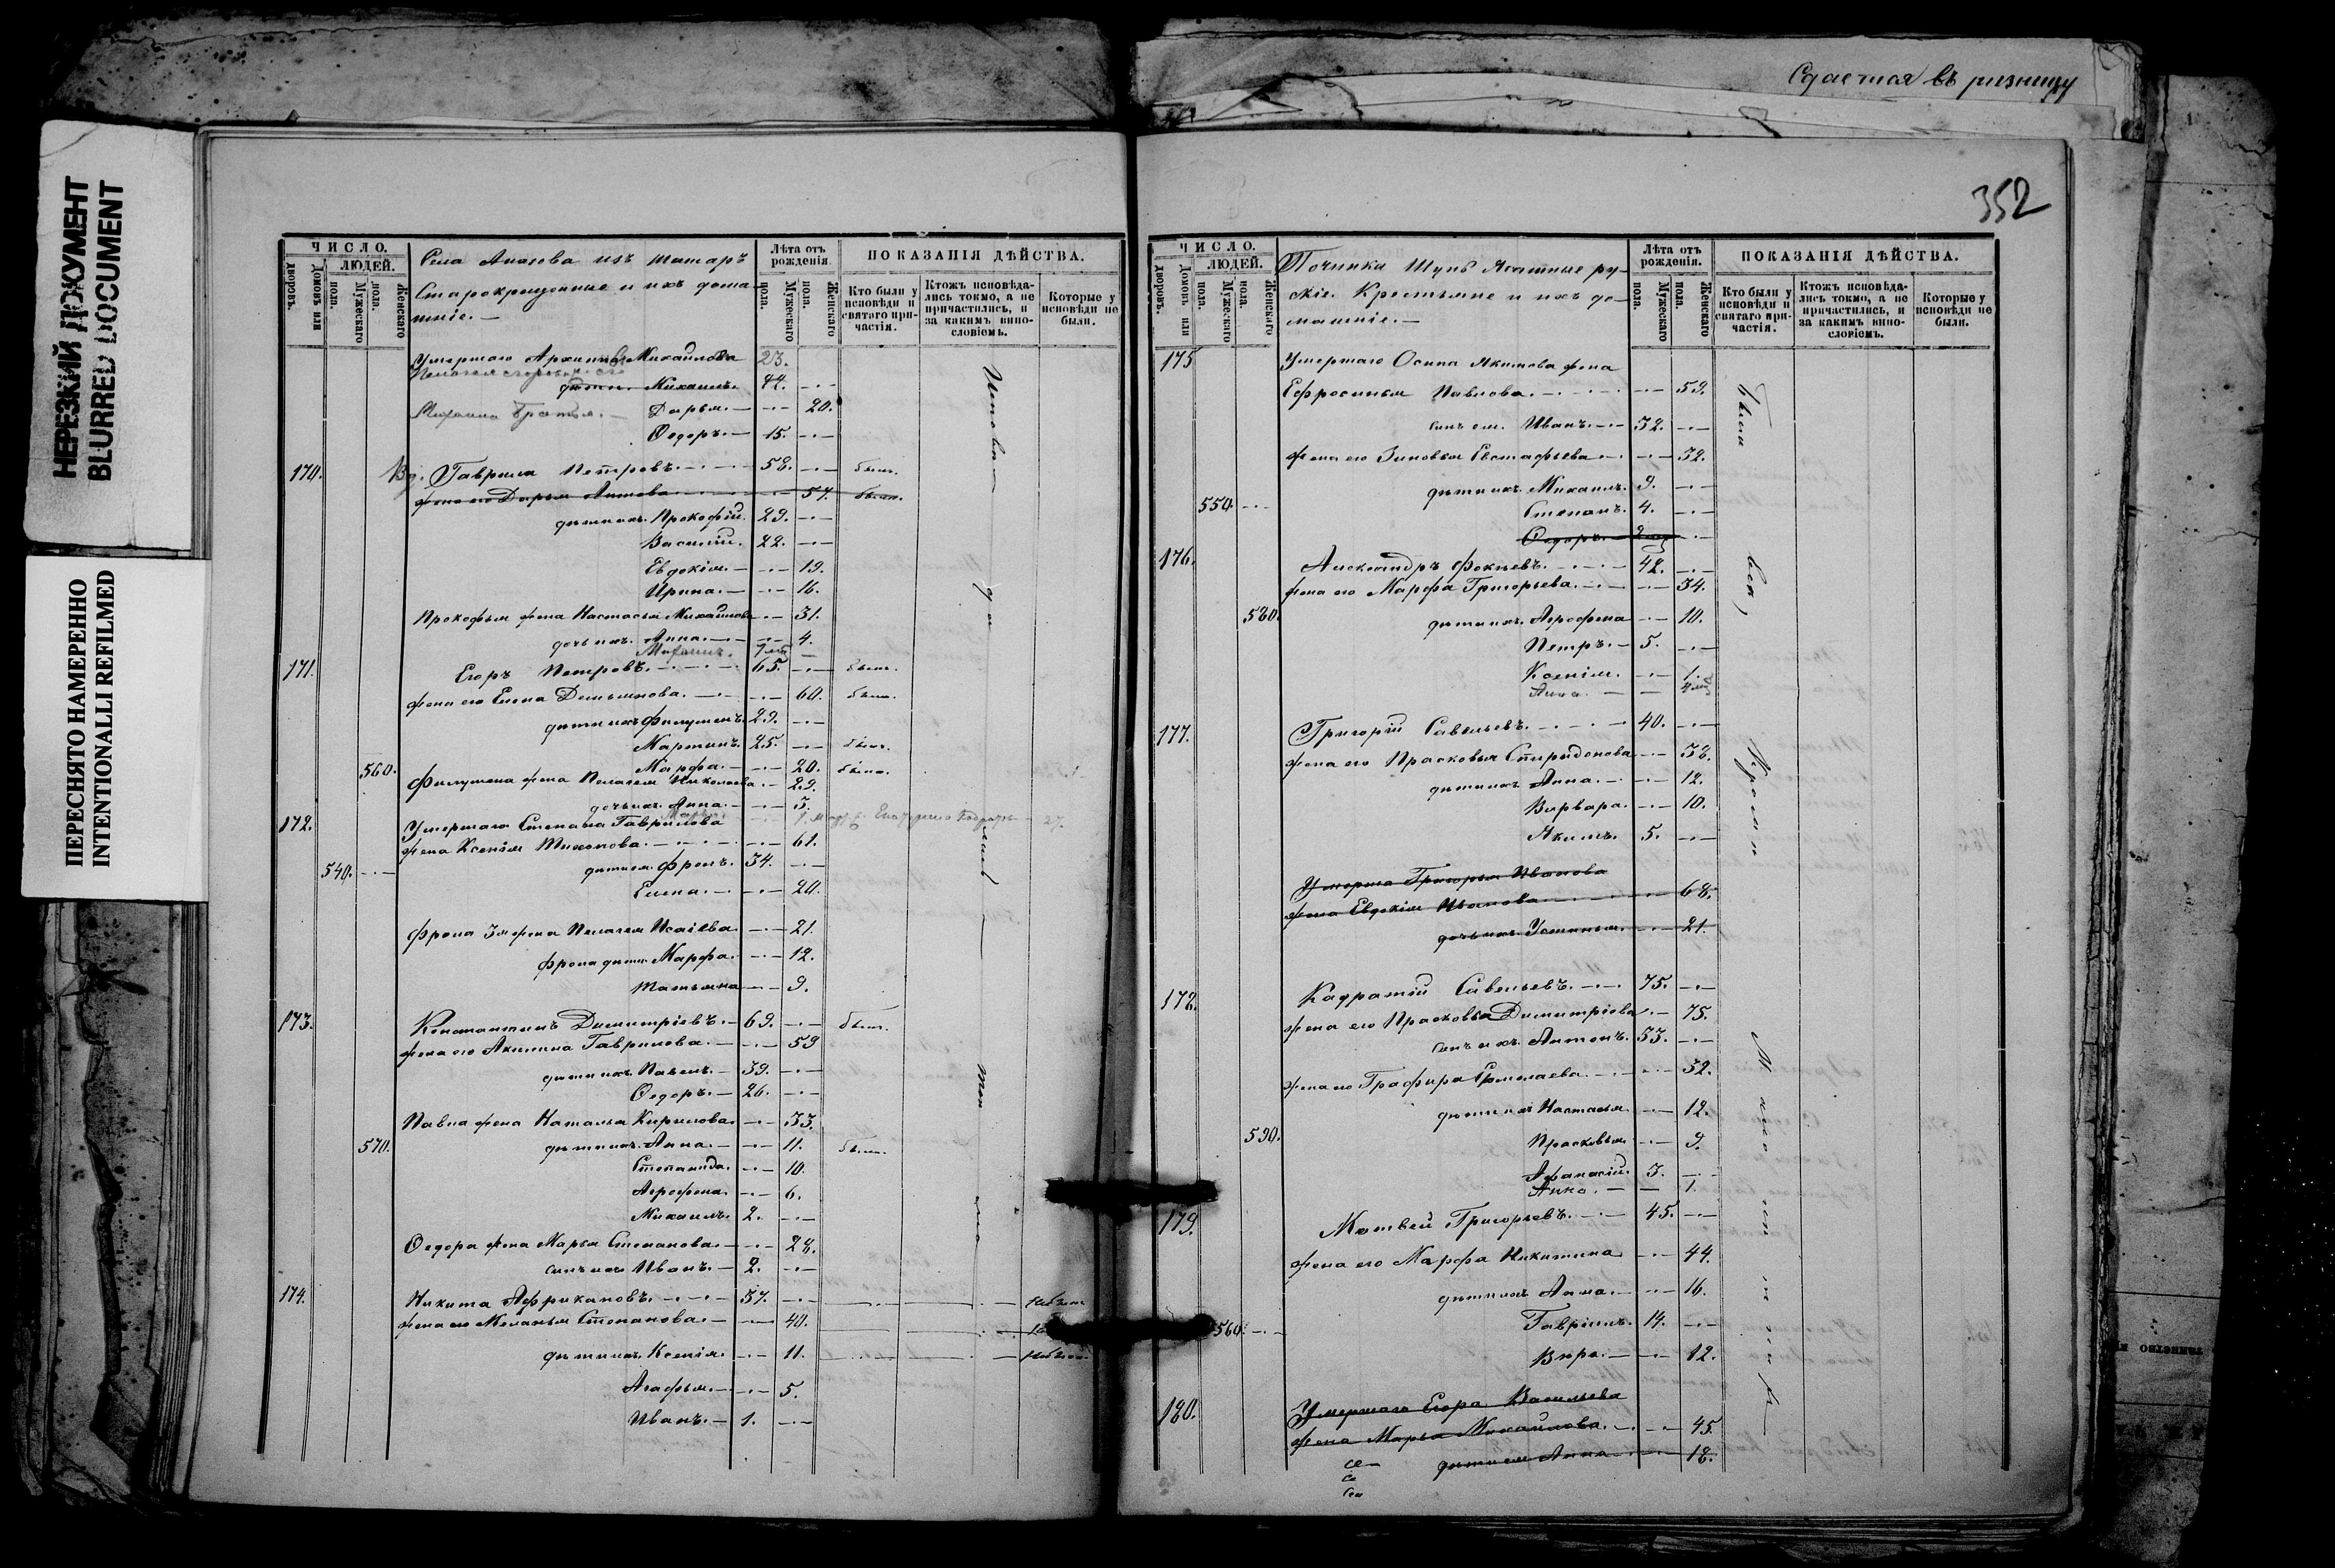 Сдается въ ризницу
352
НЕРЕЗКИЙ ДОКУМЕНТ
BLURRED DOCUMENT
ПЕРЕСНЯТО НАМЕРЕННО
INTENTIONALLI REFILMED
ЧИСЛО.
ЛЮДЕЙ.
Домовъ или дворовъ.
Мужескаго пола.
Женскаго пола.
Села изъ татаръ
Старокрещенные и ихъ дома-
шніе.—
Лѣта отъ рожденія.
Мужескаго пола.
Женскаго пола.
ПОКАЗАНІЯ ДѢЙСТВА.
Кто были у исповѣди и святаго причастія.
Ктожъ исповѣдались токмо, а не причастились, и за какимъ винословіемъ.
Которые у исповѣди не были.
Умершаго Михайлова 23.
дѣти Михаилъ. 44.
Дарья. 20.
Ѳедоръ. 15.
170. Вд. Гаврила Петровъ. 58. былъ.
жена его Дарья 57. была.
дѣти ихъ Прокофій. 29.
Василій. 22.
Евдокія. 19.
Ирина. 16.
Прокофья жена Настасья Михайлова 31.
дочь ихъ Анна. 4.
171. Егоръ Петровъ. 65. былъ.
жена его Елена Демьянова. 60. была.
дѣти ихъ Филумонъ. 29.
Мартинъ. 25. былъ.
560. Марфа. 20. была.
Филумона жена Пелагея Николаева 29.
дочь ихъ Анна. 3.
172. Умершаго Степана Гаврилова
жена Ксенія Тихонова. 61.
540. дѣти ея Фролъ. 34.
Елена. 20.
Фрола жена Пелагея Исаіева 21.
Фрола дѣти Марфа. 12.
Татьяна 9.
173. Константинъ Димитріевъ. 69. былъ.
жена его Акилина Гаврилова. 59
дѣти ихъ Павелъ. 39.
Ѳедоръ. 26.
Павла жена Наталья Кирилова 33.
570. дѣти ихъ Анна. 11. была.
Степанида. 10.
Агрофена. 6.
Михаилъ. 2.
Ѳедора жена Марья Степанова. 28.
сынъ ихъ Иванъ. 2.
174. Никита Африкановъ. 37.
жена его Меланья Степанова. 40.
дѣти ихъ Ксенія. 11.
Агафья. 5.
Иванъ. 1.
ЧИСЛО.
ЛЮДЕЙ.
Домовъ или дворовъ.
Мужескаго пола.
Женскаго пола.
Починки ру-
скіе Крестьяне и ихъ до-
машніе.—
Лѣта отъ рожденія.
Мужескаго пола.
Женскаго пола.
ПОКАЗАНІЯ ДѢЙСТВА.
Кто были у исповѣди и святаго причастія.
Ктожъ исповѣдались токмо, а не причастились, и за какимъ винословіемъ.
Которые у исповѣди не были.
175 Умершаго Осипа Якимова жена
Ефросинья Павлова. 59.
сынъ ея Иванъ. 32.
жена его Зиновья Евстафьева 32.
дѣти ихъ Михаилъ. 9.
550. Степанъ. 4.
Ѳедоръ.
176. Александръ Фокіевъ. 42.
жена его Марфа Григорьева. 34.
580. дѣти ихъ Агрофена 10.
Петръ. 5.
Ксенія. 1.
Анна.
177. Григорій Савельевъ. 40.
жена его Прасковья Спиридонова 38.
дѣти ихъ Анна. 12.
Варвара. 10.
Якимъ. 5.
Умерша Григорья Иванова
жена Евдокія Иванова 68.
дочь ихъ Устинья. 21.
178. Кадратій Савельевъ. 75.
жена его Прасковья Димитріева 75.
сынъ ихъ Антонъ. 33.
жена его 32.
дѣти ихъ Настасья 12.
590. Прасковья 9.
Афанасій. 3.
Анна. 1.
179. Матвей Григорьевъ. 45.
жена его Марфа Никитина 44.
дѣти ихъ Анна. 16.
560. Гавріилъ. 14.
Вѣра. 12.
180. Умершаго Егора Васильева
жена Марья Михайлова. 45.
дѣти ея Анна 18.